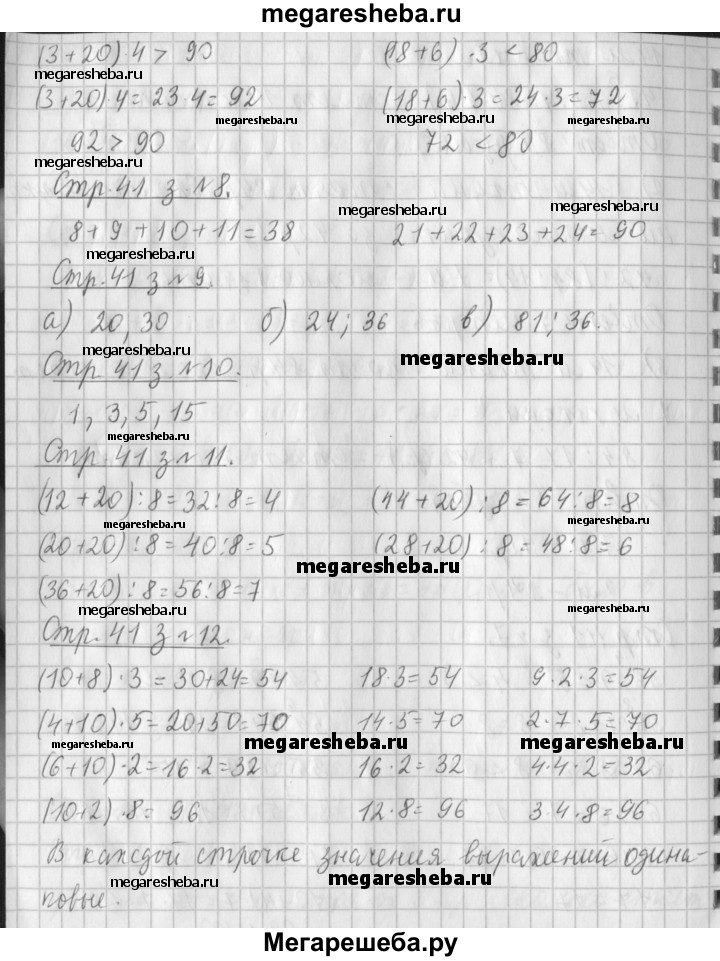 megaresheba.ru
(3+20)·4 > 90 (18+6)·3 < 80
megaresheba.ru megaresheba.ru
(3+20)·4 = 23·4 = 92 (18+6)·3 = 24·3 = 72
megaresheba.ru megaresheba.ru
92 > 90 72 < 80
megaresheba.ru
Стр. 41 з №8.
megaresheba.ru megaresheba.ru
8+9+10+11=38 21+22+23+24=90
megaresheba.ru
Стр. 41 з №9.
а) 20, 30 б) 24; 36 в) 81; 36.
megaresheba.ru megaresheba.ru
Стр 41 з №10.
1, 3, 5, 15
megaresheba.ru
Стр 41 з №11.
(12+20):8=32:8=4 (44+20):8=64:8=8
megaresheba.ru megaresheba.ru
(20+20):8=40:8=5 (28+20):8=48:8=6
megaresheba.ru
(36+20):8=56:8=7
megaresheba.ru megaresheba.ru
Стр. 41 з №12.
(10+8)·3=30+24=54 18·3=54 9·2·3=54
(4+10)·5=20+50=70 14·5=70 2·7·5=70
megaresheba.ru megaresheba.ru megaresheba.ru
(6+10)·2=16·2=32 16·2=32 4·4·2=32
(10+2)·8=96 12·8=96 3·4·8=96
В каждой строчке значения выражений одина-
megaresheba.ru megaresheba.ru
ковые.
Мегарешеба.ру